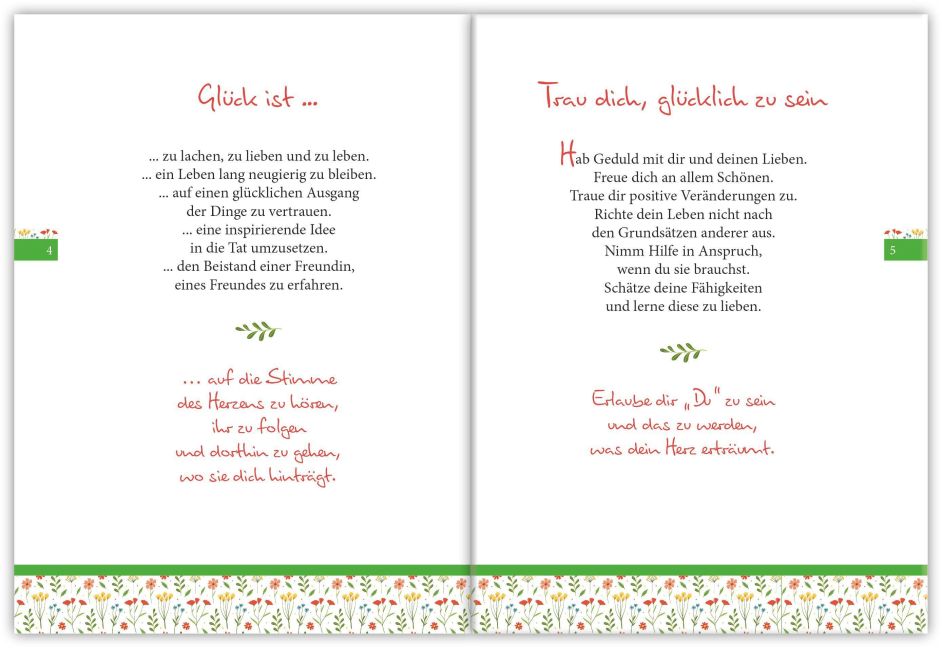 Glück ist ...
... zu lachen, zu lieben und zu leben.
... ein Leben lang neugierig zu bleiben.
... auf einen glücklichen Ausgang
der Dinge zu vertrauen.
... eine inspirierende Idee
in die Tat umzusetzen.
... den Beistand einer Freundin,
eines Freundes zu erfahren.
... auf die Stimme
des Herzens zu hören,
ihr zu folgen
und dorthin zu gehen,
wo sie dich hinträgt.
4
Trau dich, glücklich zu sein
Hab Geduld mit dir und deinen Lieben.
Freue dich an allem Schönen.
Traue dir positive Veränderungen zu.
Richte dein Leben nicht nach
den Grundsätzen anderer aus.
Nimm Hilfe in Anspruch,
wenn du sie brauchst.
Schätze deine Fähigkeiten
und lerne diese zu lieben.
Erlaube dir „Du“ zu sein
und das zu werden,
was dein Herz erträumt.
5